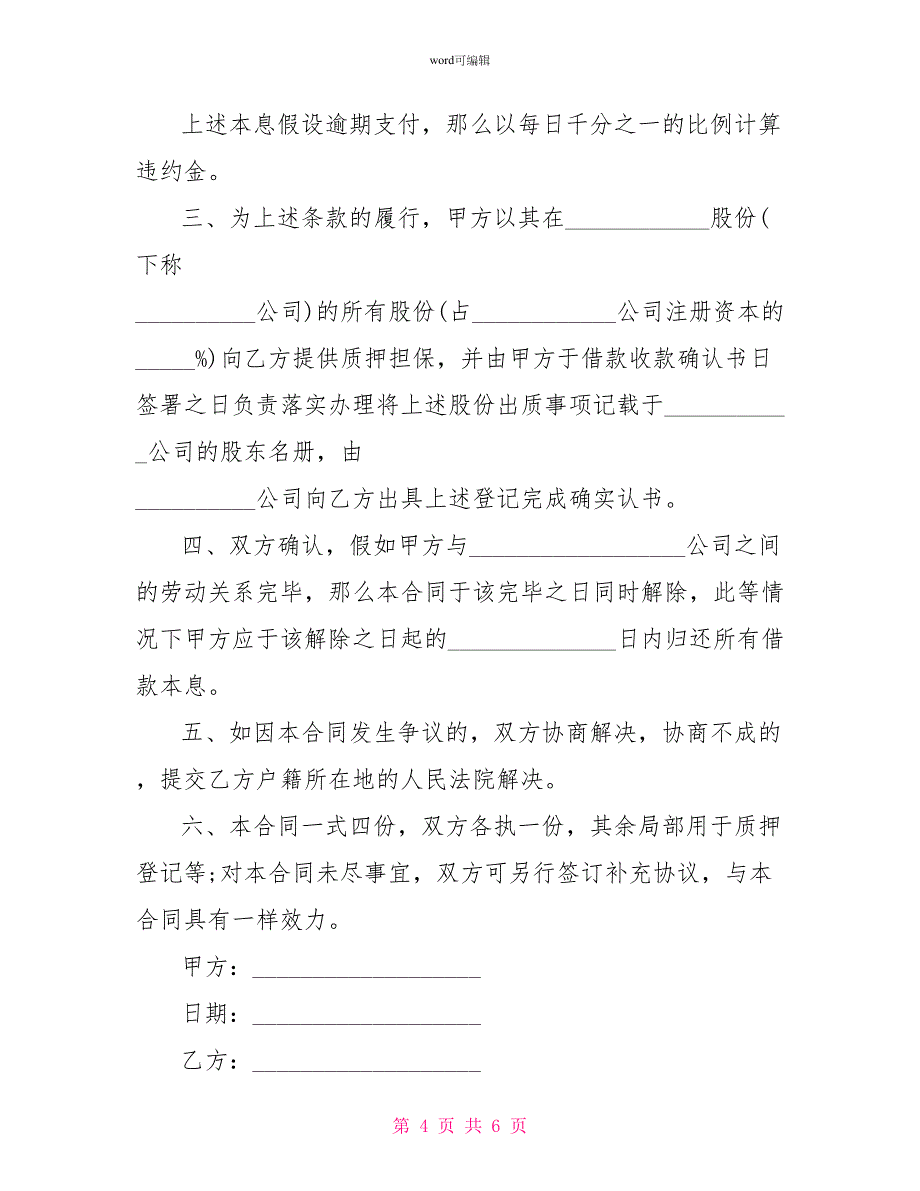 word可编辑
上述本息假设逾期支付，那么以每日千分之一的比例计算
违约金。
三、为上述条款的履行，甲方以其在____________股份(
下称
__________公司)的所有股份(占____________公司注册资本的
_____%)向乙方提供质押担保，并由甲方于借款收款确认书日
签署之日负责落实办理将上述股份出质事项记载于__________
_公司的股东名册，由
__________公司向乙方出具上述登记完成确实认书。
四、双方确认，假如甲方与__________________公司之间
的劳动关系完毕，那么本合同于该完毕之日同时解除，此等情
况下甲方应于该解除之日起的______________日内归还所有借
款本息。
五、如因本合同发生争议的，双方协商解决，协商不成的
，提交乙方户籍所在地的人民法院解决。
六、本合同一式四份，双方各执一份，其余局部用于质押
登记等;对本合同未尽事宜，双方可另行签订补充协议，与本
合同具有一样效力。
甲方：___________________
日期：___________________
乙方：___________________
第 4 页 共 6 页